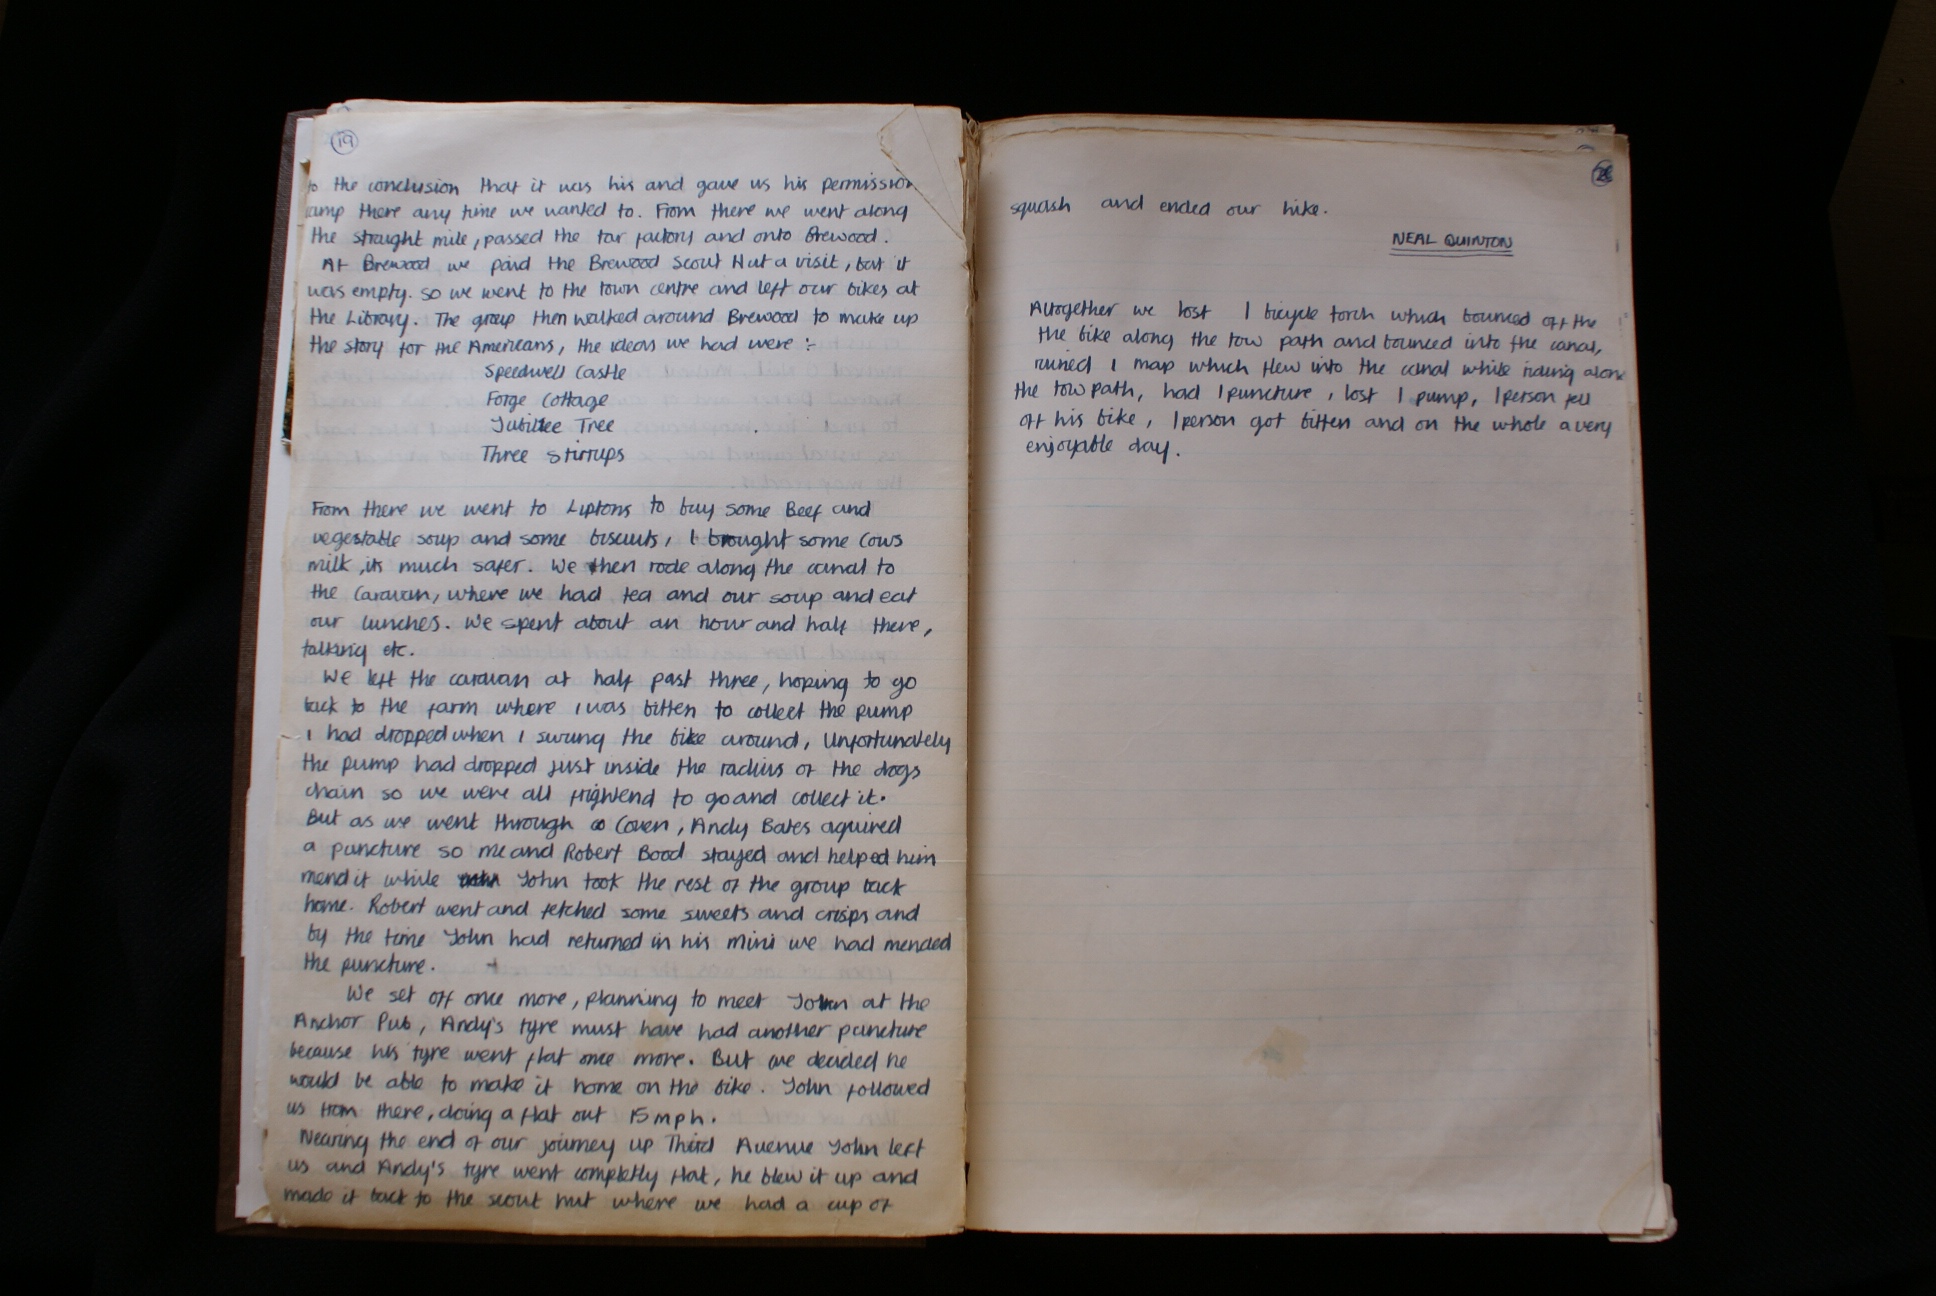 19
to the conclusion that it was his and gave us his permission
camp there any time we wanted to. From there we went along
the straight mile, passed the tar factory and onto Brewood.
At Brewood we paid the Brewood Scout Hut a visit, but it
was empty. so we went to the town centre and left our bikes at
the Library. The group then walked around Brewood to make up
the story for the Americans, the ideas we had were :-
Speedwell Castle
Forge Cottage
Jubilee Tree
Three Stirrups
From there we went to Liptons to buy some Beef and
vegestable soup and some biscuits, I brought some Cows
milk, its much safer. We then rode along the canal to
the Caravan, where we had tea and our soup and eat
our lunches. We spent about an hour and half there,
talking etc.
We left the caravan at half past three, hoping to go
back to the farm where i was bitten to collect the pump
I had dropped when I swung the bike around, Unfortunately
the pump had dropped just inside the radius of the dogs
chain so we were all frightend to go and collect it.
But as we went through Coven, Andy Bates aquired
a puncture so me and Robert Bood stayed and helped him
mend it while John took the rest of the group back
home. Robert went and fetched some sweets and crisps and
by the time John had returned in his mini we had mended
the puncture.
We set off once more, planning to meet John at the
Anchor Pub, Andy's tyre must have had another puncture
because his tyre went flat once more. But we decided he
would be able to make it home on the bike. John followed
us from there, doing a flat out 15 mph.
Nearing the end of our journey up Third Avenue John left
us and Andy's tyre went completly flat, he blew it up and
made it back to the scout hut where we had a cup of
squash and ended our hike.
NEAL QUINTON
Altogether we lost 1 bicycle torch which bounced off the
the bike along the tow path and bounced into the canal,
ruined 1 map which flew into the canal while riding along
the tow path, had 1 puncture, lost 1 pump, 1 person fell
off his bike, 1 person got bitten and on the whole a very
enjoyable day.